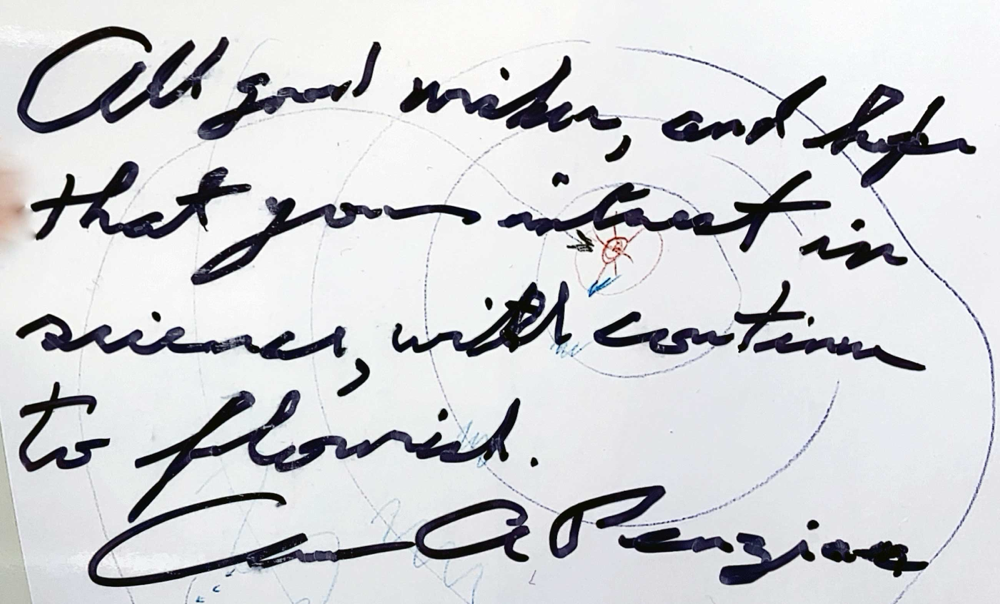 All good wishes, and hope
that your interest in
science, will continue
to flourish.
Arno A Penzias